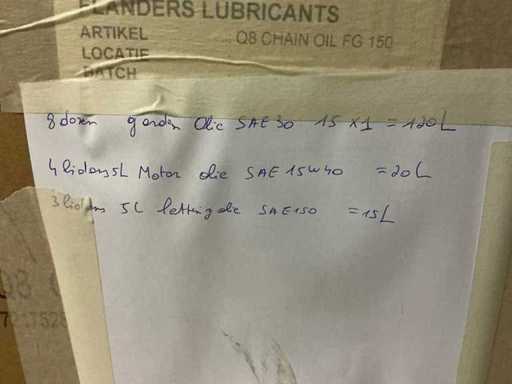 FLANDERS LUBRICANTS
ARTIKEL Q8 CHAIN OIL FG 150
LOCATIE
BATCH
8 dozen garden Olie SAE 30 15 x 1 = 120L
4 bidons 5L Motor olie SAE 15W40 = 20L
3 bidons 5L kettingolie SAE 150 = 15L